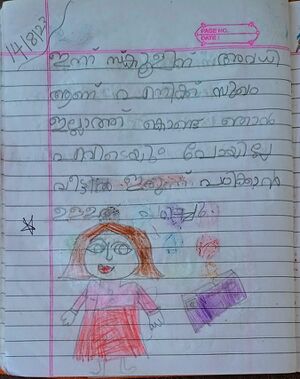 14/8/23
PAGE NO.
DATE:
ഇന്ന് സ്കൂളിന് അവധി
ആണ് എനിക്ക് സുഖം
ഇല്ലാത്ത് കൊണ്ട് ഞാൻ
എവിടെയും പോയില്ല
വീട്ടിൽ ഇരുന്ന് പഠിക്കാൻ
ഉള്ളത്